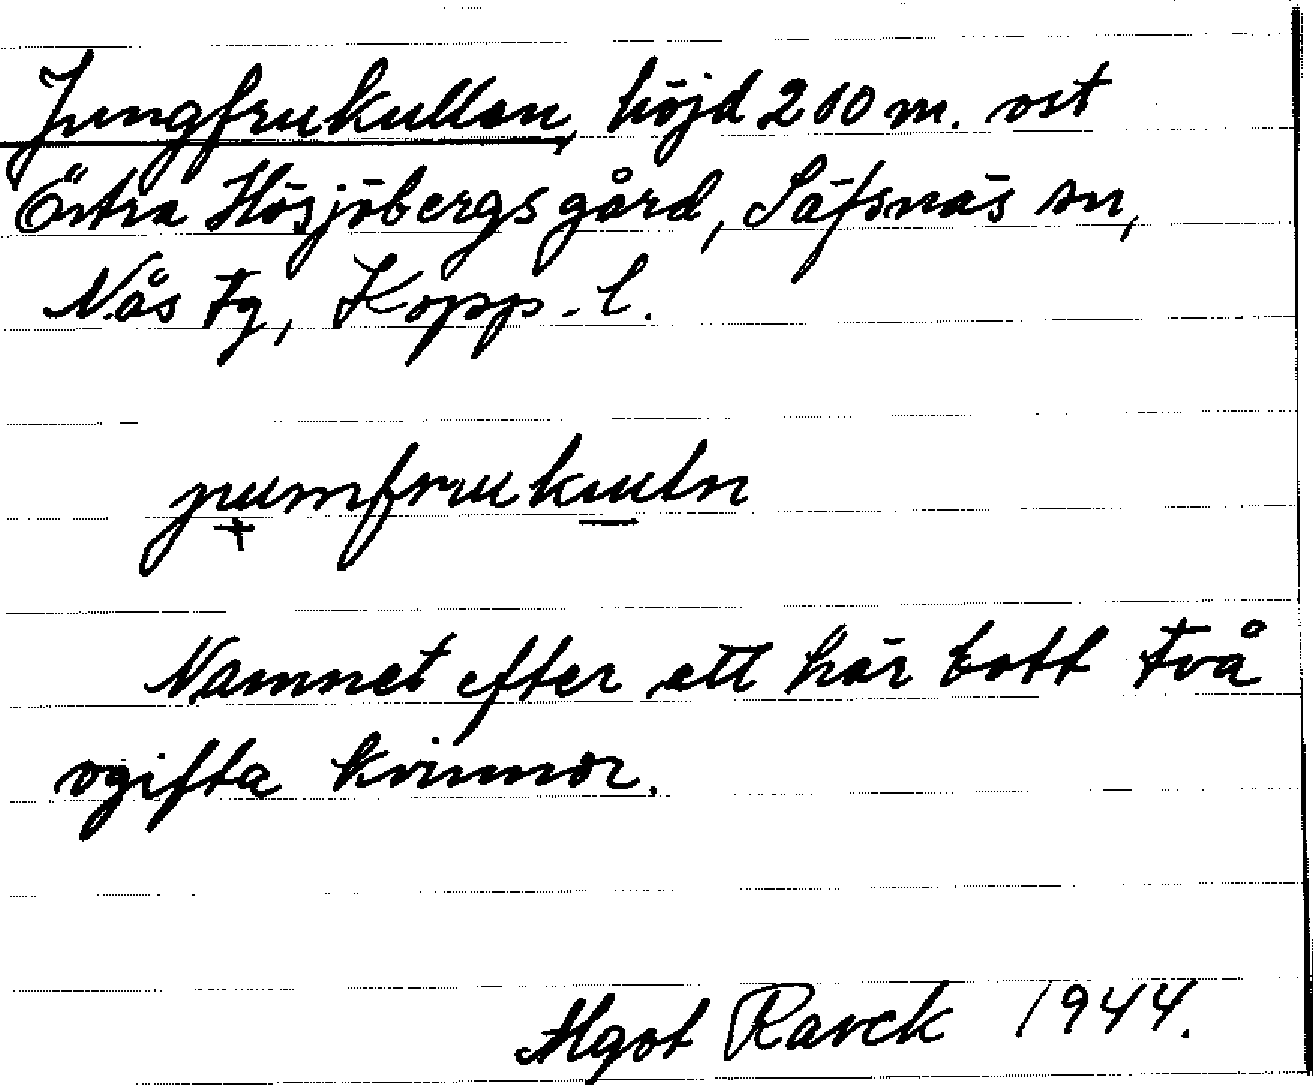 Jungfrukullen, höjd 200 m. ost
Östra Hösjöbergs gård, Säfsnäs sn,
Nås tg, Kopp. l.
jumfrukuln
Namnet efter att här bott två
ogifta kvinnor.
Algot Ravck 1944.